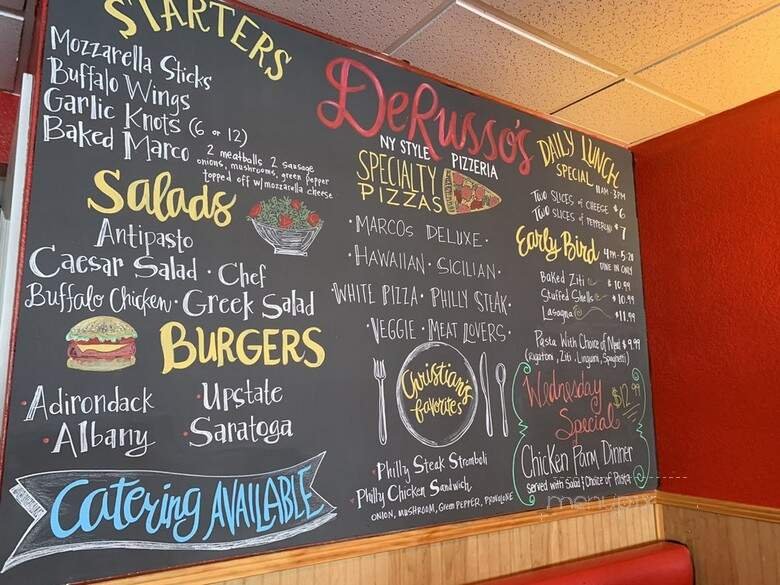 STARTERS
Mozzarella Sticks
Buffalo Wings
Garlic Knots (6 or 12)
Baked Marco 2 meatballs 2 sausage
onions, mushrooms, green pepper
topped off w/mozzarella cheese
Salads
Antipasto
Caesar Salad · Chef
Buffalo Chicken · Greek Salad
BURGERS
· Adirondack · Upstate
· Albany · Saratoga
Catering AVAILABLE
DeRusso's
NY STYLE PIZZERIA
SPECIALTY
PIZZAS
· MARCOS DELUXE ·
· HAWAIIAN · SICILIAN ·
WHITE PIZZA · PHILLY STEAK ·
· VEGGIE · MEAT LOVERS ·
Christian's
favorites
· Philly Steak Stromboli
· Philly Chicken Sandwich
ONION, MUSHROOM, Green PEPPER, PROVOLONE
DAILY LUNCH
SPECIAL 11AM-3PM
TWO SLICES OF CHEESE $6
TWO SLICES OF PEPPERONI $7
Early Bird 4PM-5:20
DINE IN ONLY
Baked Ziti $10.99
Stuffed Shells $10.99
Lasagna $11.99
Pasta With Choice of Meat $9.99
(Rigatoni, Ziti, Linguini, Spaghetti)
Wednesday $12.99
Special
Chicken Parm Dinner
served with Salad & Choice of Pasta
menupix